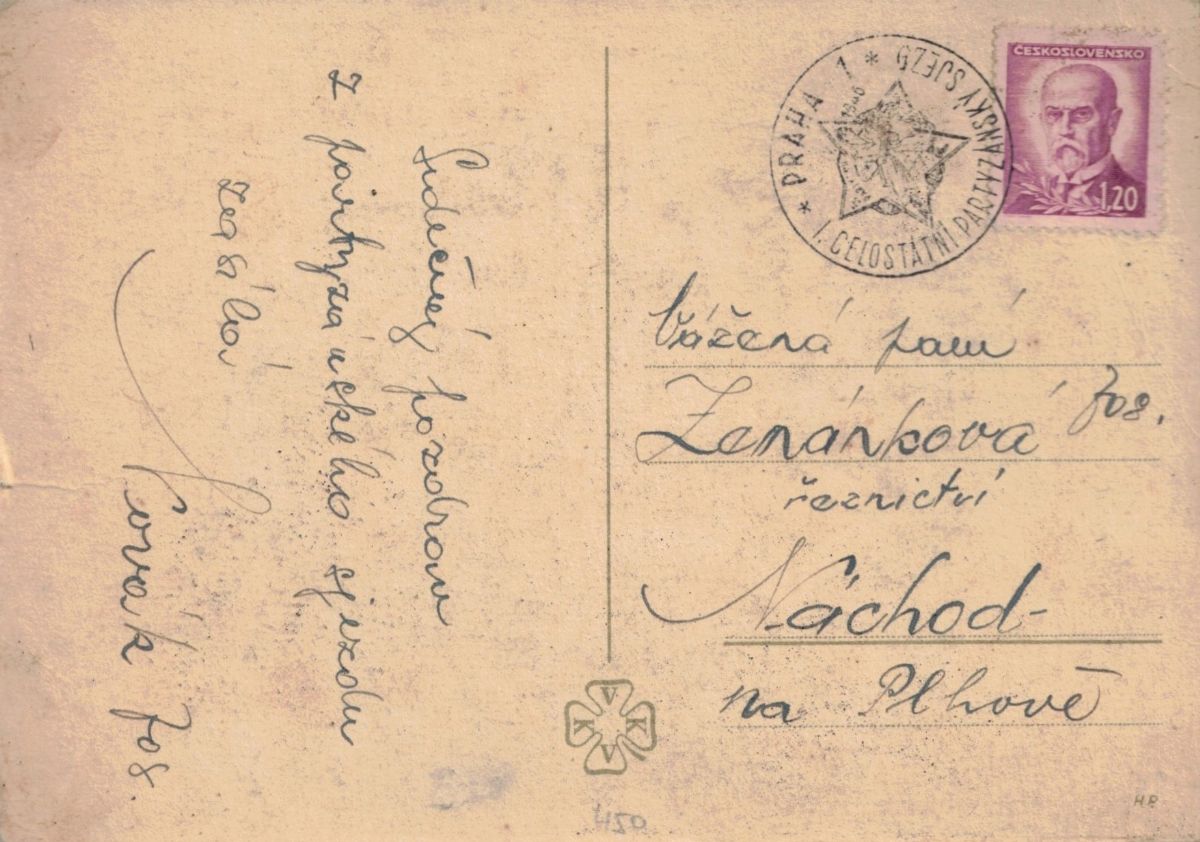 Srdečný pozdrav
z partyzánského sjezdu
zasílá
Novák Jos.
* PRAHA 1 * I. CELOSTÁTNÍ PARTYZÁNSKÝ SJEZD
1946
ČESKOSLOVENSKO
1,20
Vážená paní
Zemánková Jos.
řeznictví
Náchod-
na Plhově
V K V K
450
H.P.